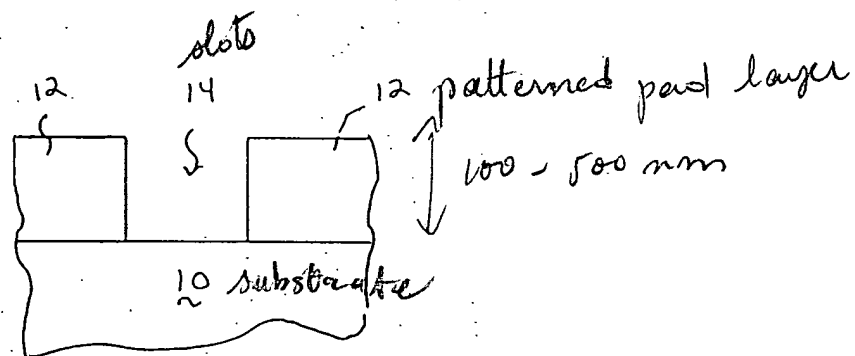 slots
12 14 12 patterned pad layer
100 - 500 nm
10 substrate